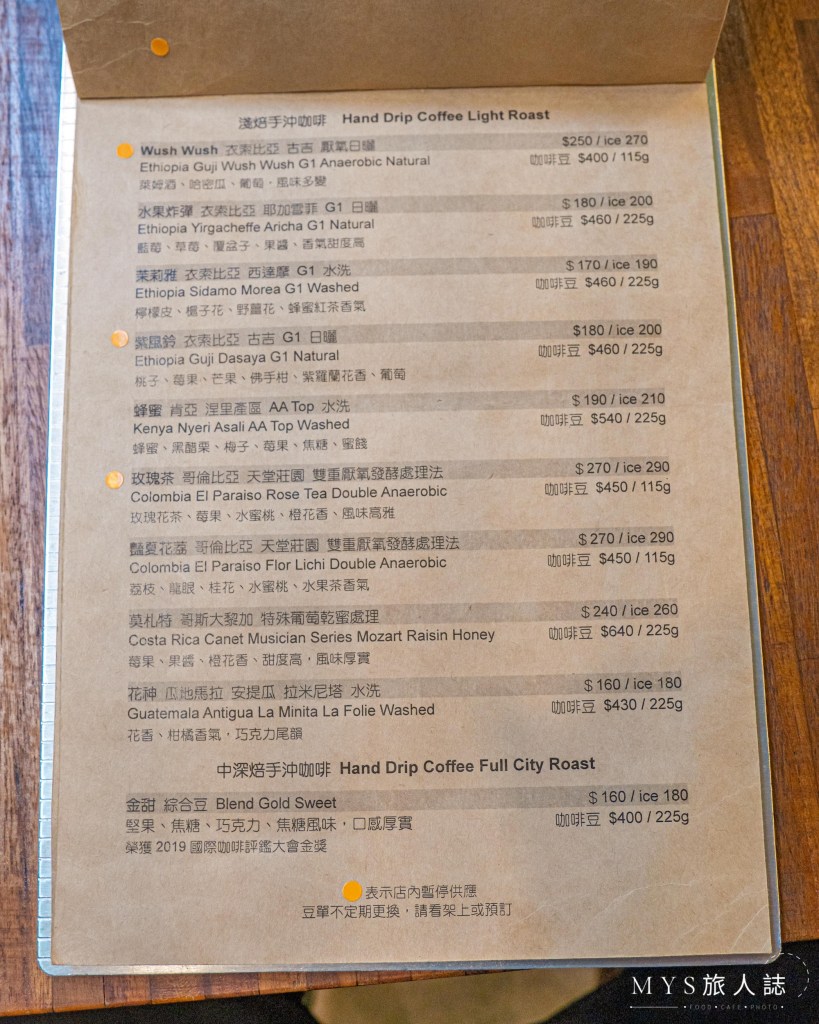 淺焙手沖咖啡 Hand Drip Coffee Light Roast
Wush Wush 衣索比亞 古吉 厭氧日曬 $250 / ice 270
Ethiopia Guji Wush Wush G1 Anaerobic Natural 咖啡豆 $400 / 115g
萊姆酒、哈密瓜、葡萄，風味多變
水果炸彈 衣索比亞 耶加雪菲 G1 日曬 $180 / ice 200
Ethiopia Yirgacheffe Aricha G1 Natural 咖啡豆 $460 / 225g
藍莓、草莓、覆盆子、果醬、香氣甜度高
茉莉雅 衣索比亞 西達摩 G1 水洗 $170 / ice 190
Ethiopia Sidamo Morea G1 Washed 咖啡豆 $460 / 225g
檸檬皮、梔子花、野薑花、蜂蜜紅茶香氣
紫風鈴 衣索比亞 古吉 G1 日曬 $180 / ice 200
Ethiopia Guji Dasaya G1 Natural 咖啡豆 $460 / 225g
桃子、莓果、芒果、佛手柑、紫羅蘭花香、葡萄
蜂蜜 肯亞 涅里產區 AA Top 水洗 $190 / ice 210
Kenya Nyeri Asali AA Top Washed 咖啡豆 $540 / 225g
蜂蜜、黑醋栗、梅子、莓果、焦糖、蜜餞
玫瑰茶 哥倫比亞 天堂莊園 雙重厭氧發酵處理法 $270 / ice 290
Colombia El Paraiso Rose Tea Double Anaerobic 咖啡豆 $450 / 115g
玫瑰花茶、莓果、水蜜桃、橙花香、風味高雅
豔夏花荔 哥倫比亞 天堂莊園 雙重厭氧發酵處理法 $270 / ice 290
Colombia El Paraiso Flor Lichi Double Anaerobic 咖啡豆 $450 / 115g
荔枝、龍眼、桂花、水蜜桃、水果茶香氣
莫札特 哥斯大黎加 特殊葡萄乾蜜處理 $240 / ice 260
Costa Rica Canet Musician Series Mozart Raisin Honey 咖啡豆 $640 / 225g
莓果、果醬、橙花香、甜度高，風味厚實
花神 瓜地馬拉 安提瓜 拉米尼塔 水洗 $160 / ice 180
Guatemala Antigua La Minita La Folie Washed 咖啡豆 $430 / 225g
花香、柑橘香氣，巧克力尾韻
中深焙手沖咖啡 Hand Drip Coffee Full City Roast
金甜 綜合豆 Blend Gold Sweet $160 / ice 180
堅果、焦糖、巧克力、焦糖風味，口感厚實 咖啡豆 $400 / 225g
榮獲 2019 國際咖啡評鑑大會金獎
表示店內暫停供應
豆單不定期更換，請看架上或預訂
MYS旅人誌
•FOOD•CAFE•PHOTO•